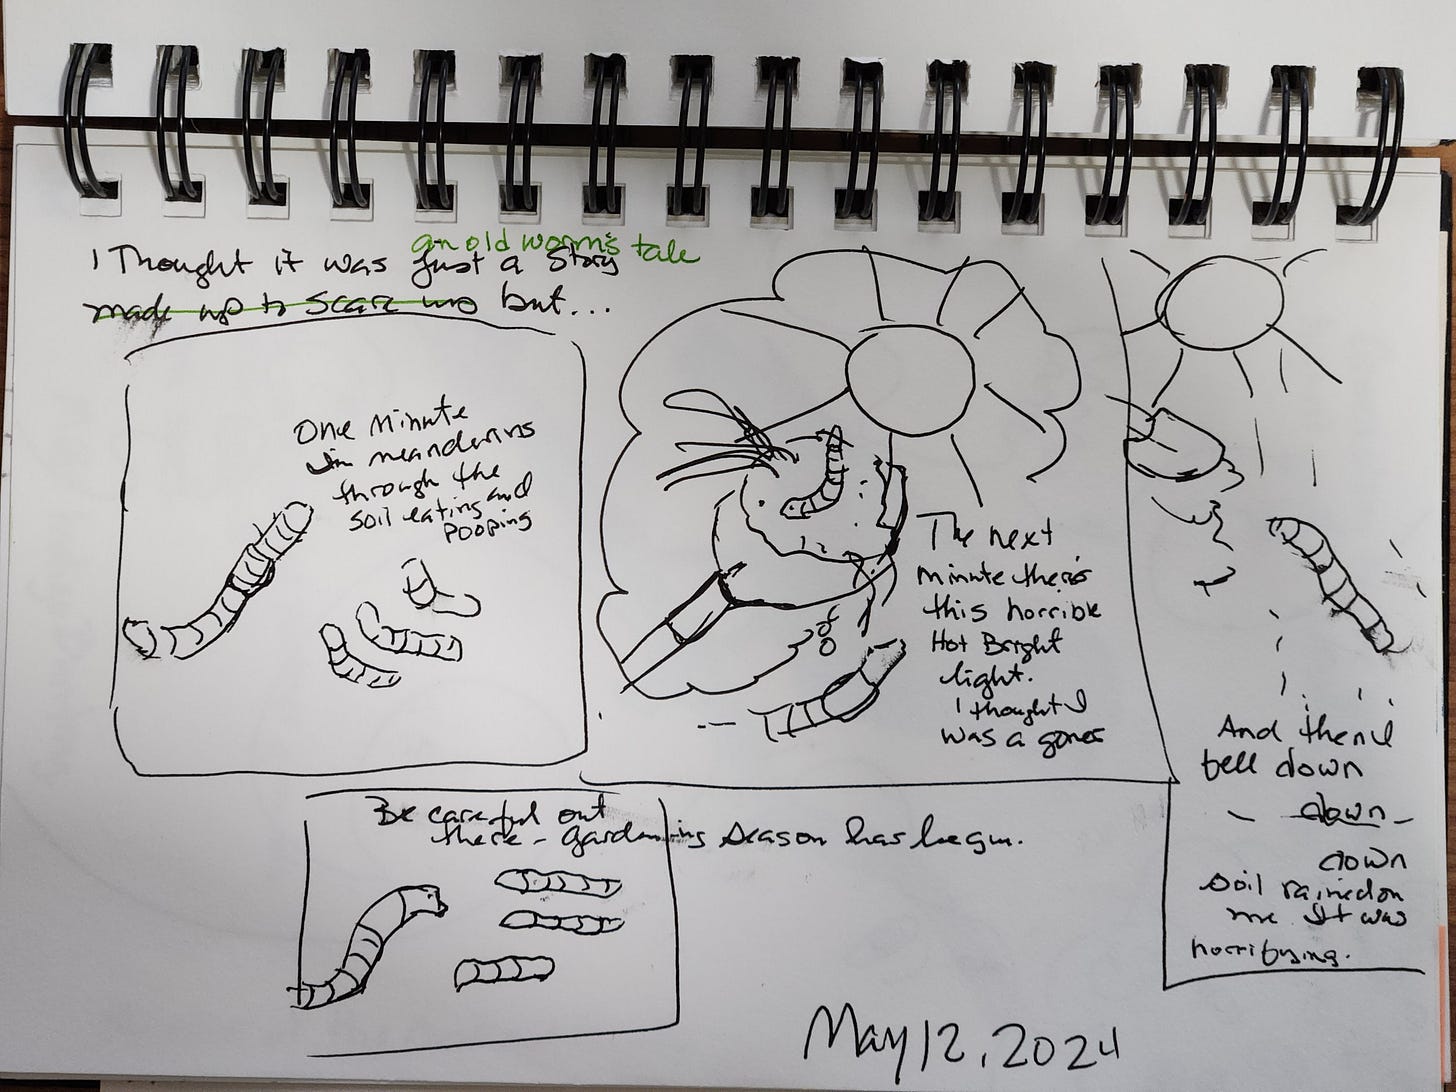 an old worm's tale
I Thought it was just a story
made up to scare us but...
One Minute
I'm meandering
through the
soil eating and
pooping
The next
minute there's
this horrible
Hot Bright
light.
I thought I
was a goner
And then I
fell down
down
down
soil rained on
me. It was
horrifying.
Be careful out
there - gardening season has begun.
May 12, 2024